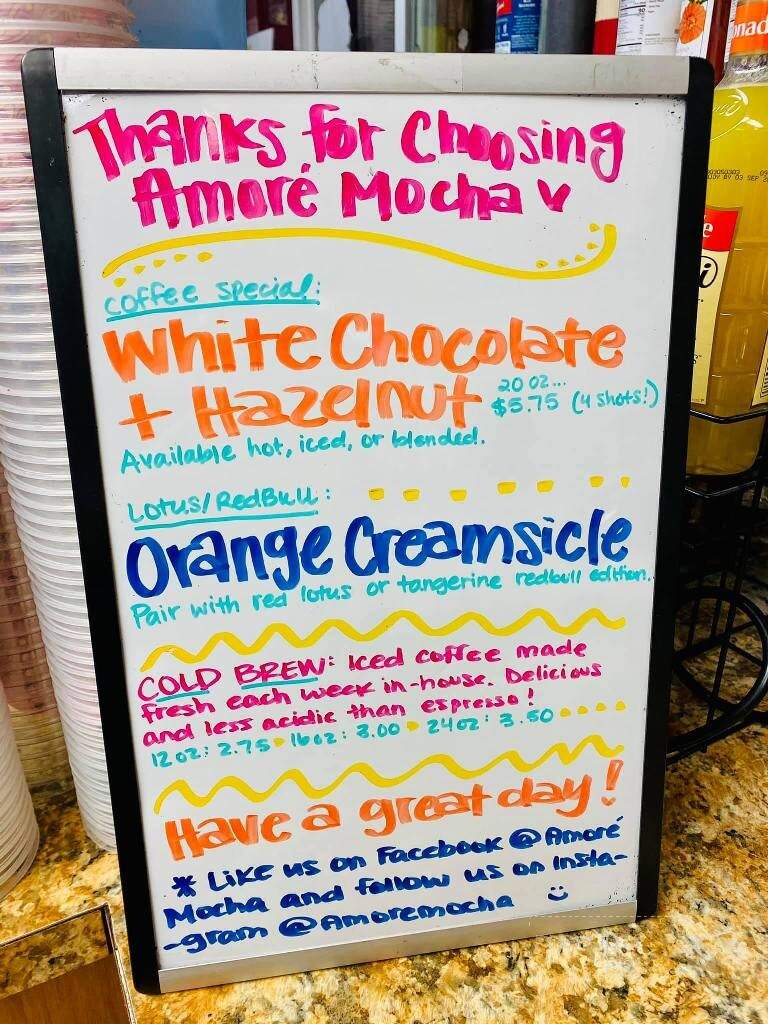 Thanks for Choosing
Amoré Mocha
coffee special:
White Chocolate
+ Hazelnut
20 oz...
$5.75 (4 shots!)
Available hot, iced, or blended.
Lotus/RedBull:
Orange Creamsicle
Pair with red lotus or tangerine redbull edition.
COLD BREW: Iced coffee made
fresh each week in-house. Delicious
and less acidic than espresso!
12oz: 2.75 16oz: 3.00 24oz: 3.50
Have a great day!
* Like us on Facebook @Amoré
Mocha and follow us on Insta-
-gram @Amoremocha